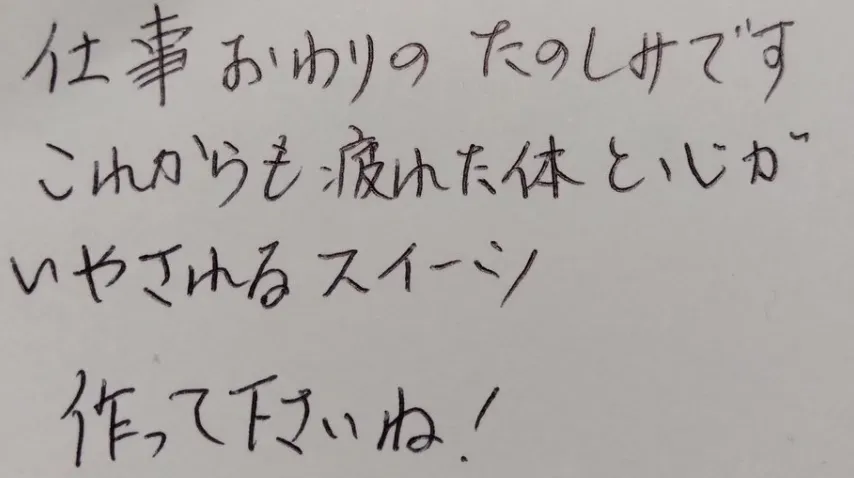 仕事おわりの たのしみです
これからも疲れた体と心が
いやされるスイーツ
作って下さいね!